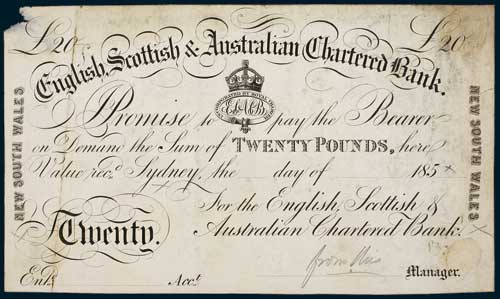 £20 £20
English, Scottish & Australian Chartered Bank.
INCORPORATED BY ROYAL CHARTER
E.S.&A.C.B.
I Promise to pay the Bearer
on Demand the Sum of TWENTY POUNDS, here
Value recd. Sydney, the day of 185
For the English, Scottish &
Twenty. Australian Chartered Bank.
Manager.
Entd. Acct.
NEW SOUTH WALES
NEW SOUTH WALES